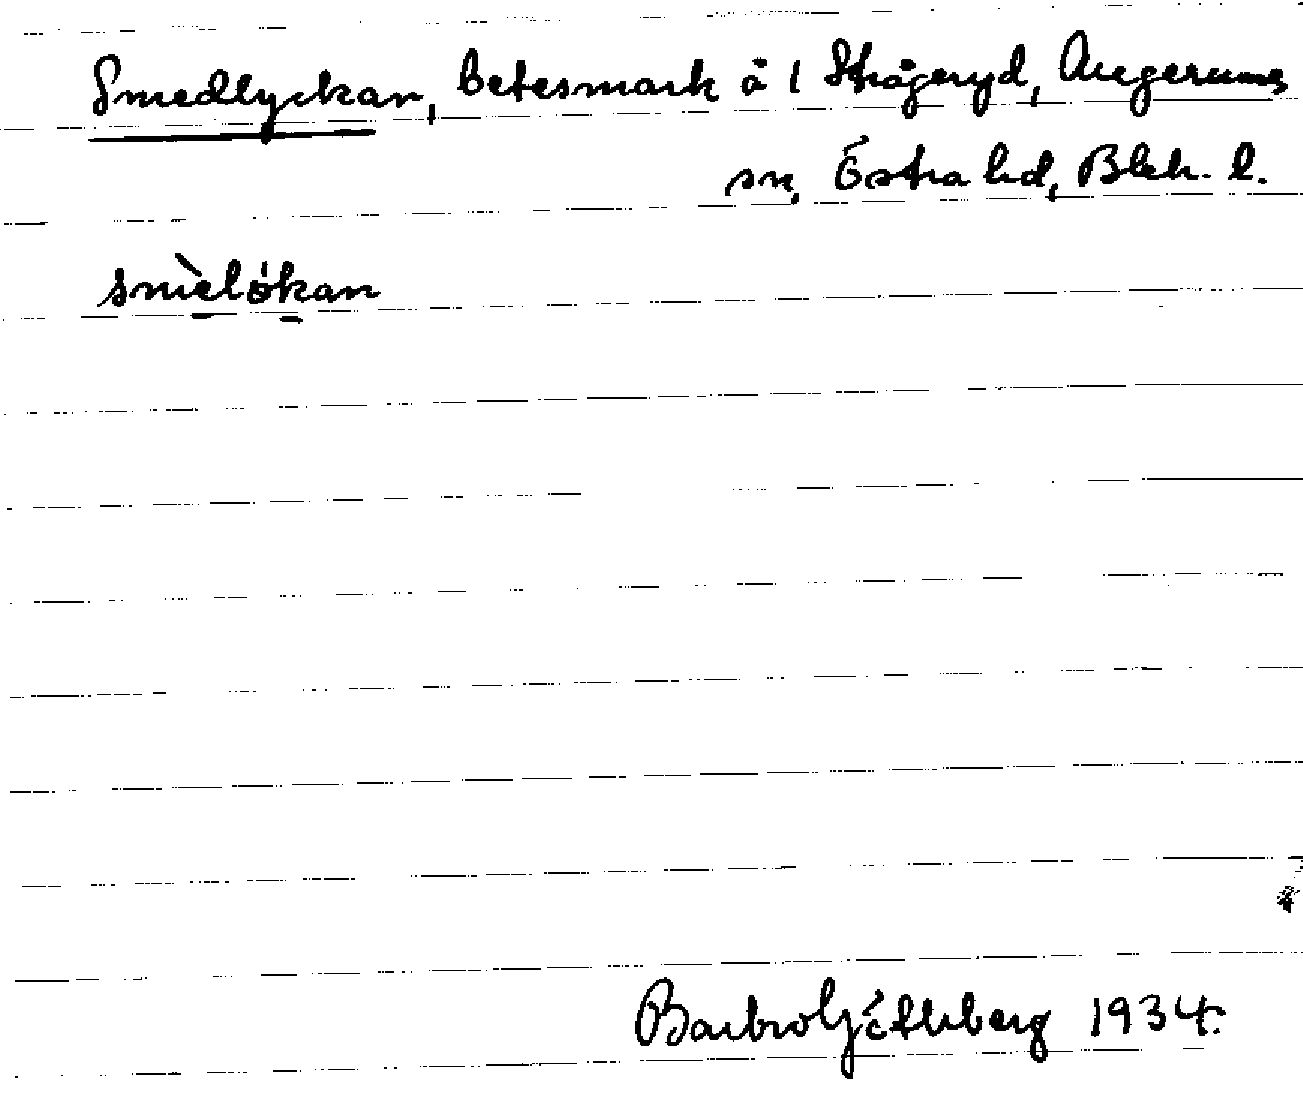 Smedlyckan, betesmark å 1 Strågeryd, Augerums
sn, Östra hd, Blek. l.
smèlökan
Barbro Götherberg 1934.